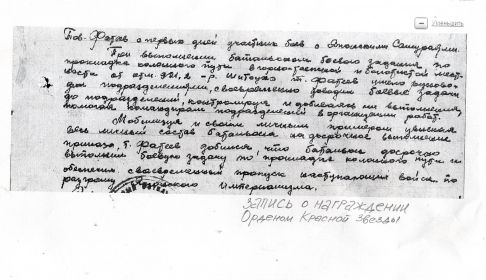 Уменьшить
Тов. Фатеев с первых дней участник боев с Японскими Самураями.
При выполнении батальоном боевого задания по
прокладке колонного пути в гористой и болотистой мест-
ности от отм. 921,2 - р. т. Фатеев умело руководил
подразделениями, своевременно доводил боевые задачи
до подразделений, контролируя и добиваясь их выполнения,
помогая командирам подразделений в организации работ.
Мобилизуя и своим личным примером увлекая
весь личный состав батальона на досрочное выполнение
приказа, т. Фатеев добился, что батальон досрочно
выполнил боевую задачу по прокладке колонного пути и
обеспечил своевременный пропуск наступающих войск по
разгрому Империализма.
ЗАПИСЬ О НАГРАЖДЕНИИ
ОРДЕНОМ КРАСНОЙ ЗВЕЗДЫ